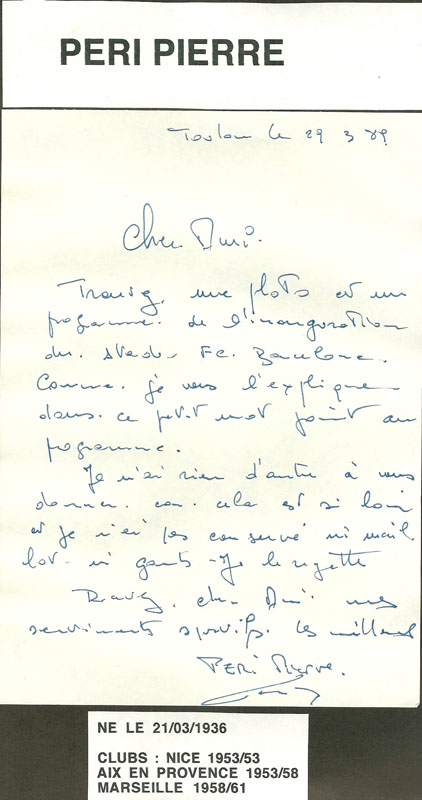 PERI PIERRE
Toulon le 29 3 89
Cher Ami.
Trouvez, une photo et un
programme. de l'inauguration
du. stade. Fc. Barcelone.
Comme. je vous l'explique
dans. ce petit mot joint au
programme.
Je n'ai rien d'autre à vous
donner. car. cela est si loin
et je n'ai pas conservé ni mail
lot. ni gants - Je le regrette
cher Ami. mes
sentiments sportifs. les meilleurs
PERI Pierre.
NE LE 21/03/1936
CLUBS : NICE 1953/53
AIX EN PROVENCE 1953/58
MARSEILLE 1958/61